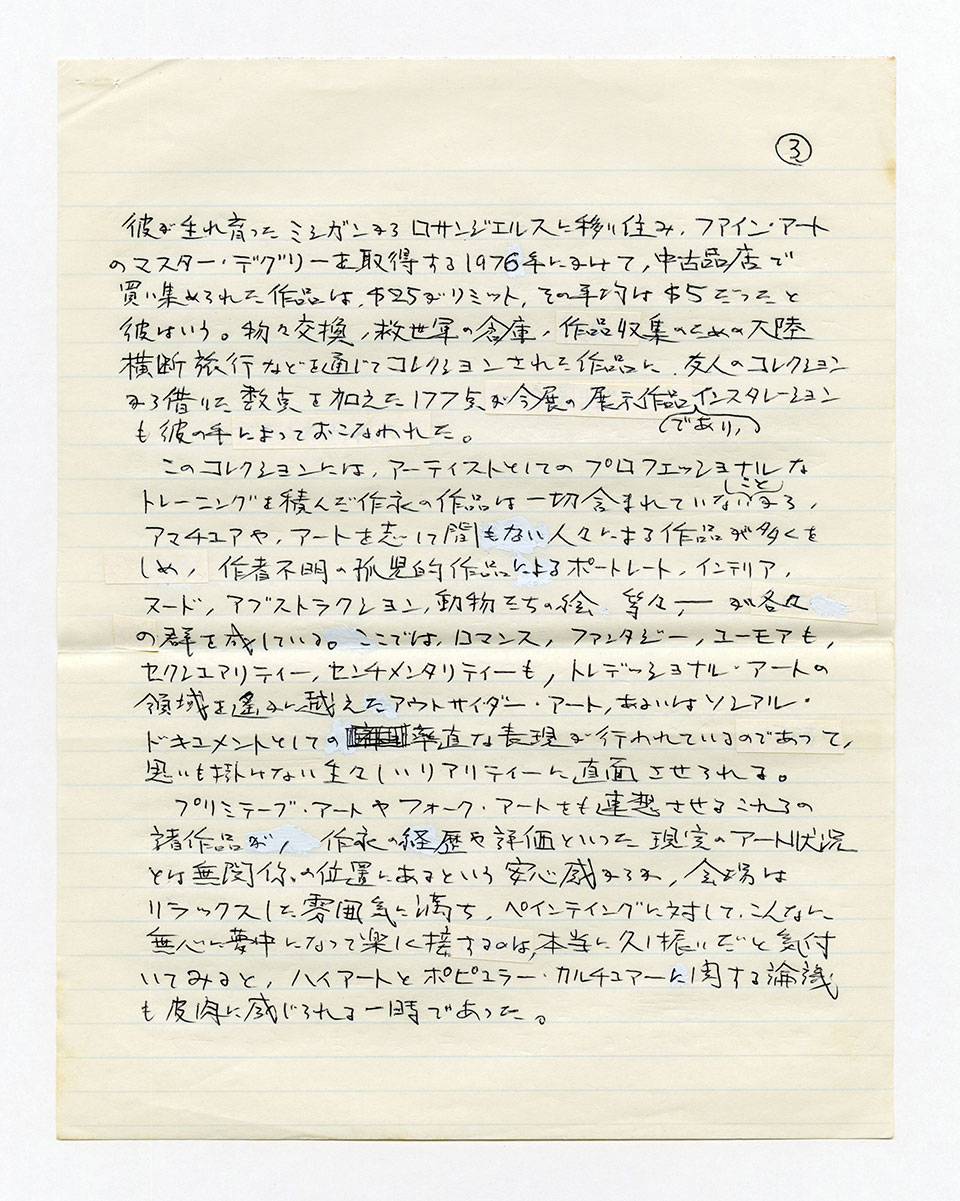 ③
彼が生れ育ったミシガンからロサンジェルスに移り住み、ファイン・アート
のマスター・デグリーを取得する1976年にかけて、中古品店で
買い集められた作品は、$25がリミット、その平均は$5だったと
彼はいう。物々交換、救世軍の倉庫、作品収集のための大陸
横断旅行などを通じてコレクションされた作品に、友人のコレクション
から借りた数点を加えた177点が今展の展示作品であり、インスタレーション
も彼の手によっておこなわれた。
このコレクションには、アーティストとしてのプロフェッショナルな
トレーニングを積んだ作家の作品は一切含まれていないことから、
アマチュアや、アートを志して間もない人々による作品が多くを
しめ、作者不明の孤児的作品によるポートレート、インテリア、
ヌード、アブストラクション、動物たちの絵、等々、一が各々
の群を成している。ここでは、ロマンス、ファンタジー、ユーモアも、
セクシュアリティー、センチメンタリティーも、トレデッショナル・アートの
領域を遙かに越えたアウトサイダー・アート、あるいはソシアル・
ドキュメントとしての率直な表現が行われているのであって、
思いも掛けない生々しいリアリティーに直面させられる。
プリミテーブ・アートやフォーク・アートをも連想させるこれらの
諸作品が、作家の経歴や評価といった現実のアート状況
とは無関係の位置にあるという安心感からか、会場は
リラックスした雰囲気に満ち、ペインティングに対して、こんなに
無心に夢中になって楽しく接するのは、本当に久し振りだと気付
いてみると、ハイアートとポピュラー・カルチュアーに関する論議
も皮肉に感じられる一時であった。